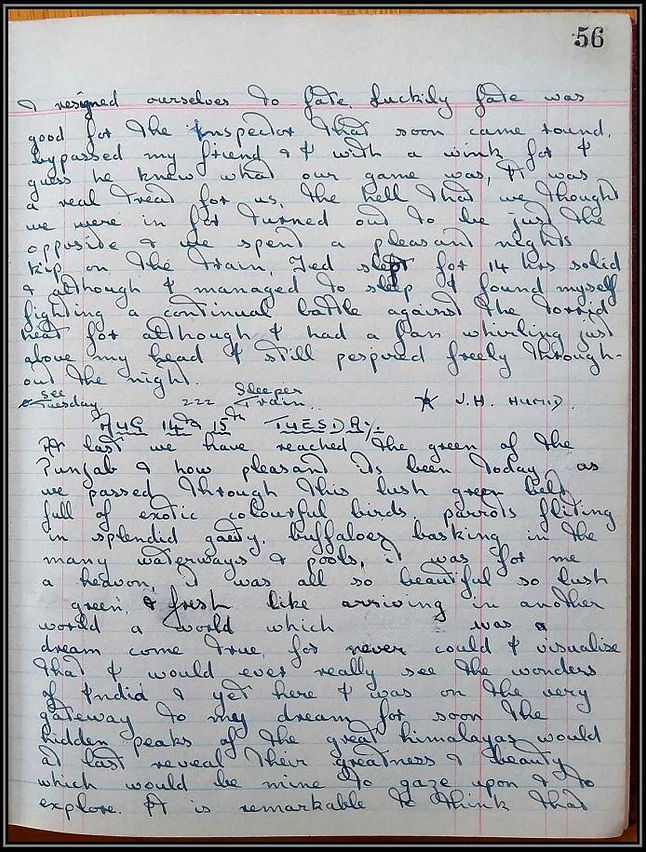 56
& resigned ourselves to fate. Luckily fate was
good for the Inspector that soon came round,
bypassed my friend & I with a wink for I
guess he knew what our game was, It was
a real treat for us, the hell that we thought
we were in for turned out to be just the
opposite & we spent a pleasant nights
kip on the train, Ted slept for 14 hrs solid
& although I managed to sleep I found myself
fighting a continual battle against the torrid
heat for although I had a fan whirling just
above my head I still pespired freely through-
out the night.
see Tuesday 222 Sleeper Train. ☆ V.H. HUMID.
AUG 14th 15th TUESDAY.
At last we have reached the green of the
Punjab & how pleasant its been today as
we passed through this lush green belt
full of exotic colourful birds parrots fliting
in splendid gaety, buffaloes basking in the
many waterways & pools, it was for me
a heavon, I was all so beautiful so lush
green, & fresh like arriving in another
world a world which was a
dream come true, for never could I visualise
that I would ever really see the wonders
of India & yet here I was on the very
gateway to my dream for soon the
hidden peaks of the great himalayas would
at last reveal their greatness & beauty
which would be mine to gaze upon & to
explore. It is remarkable to think that